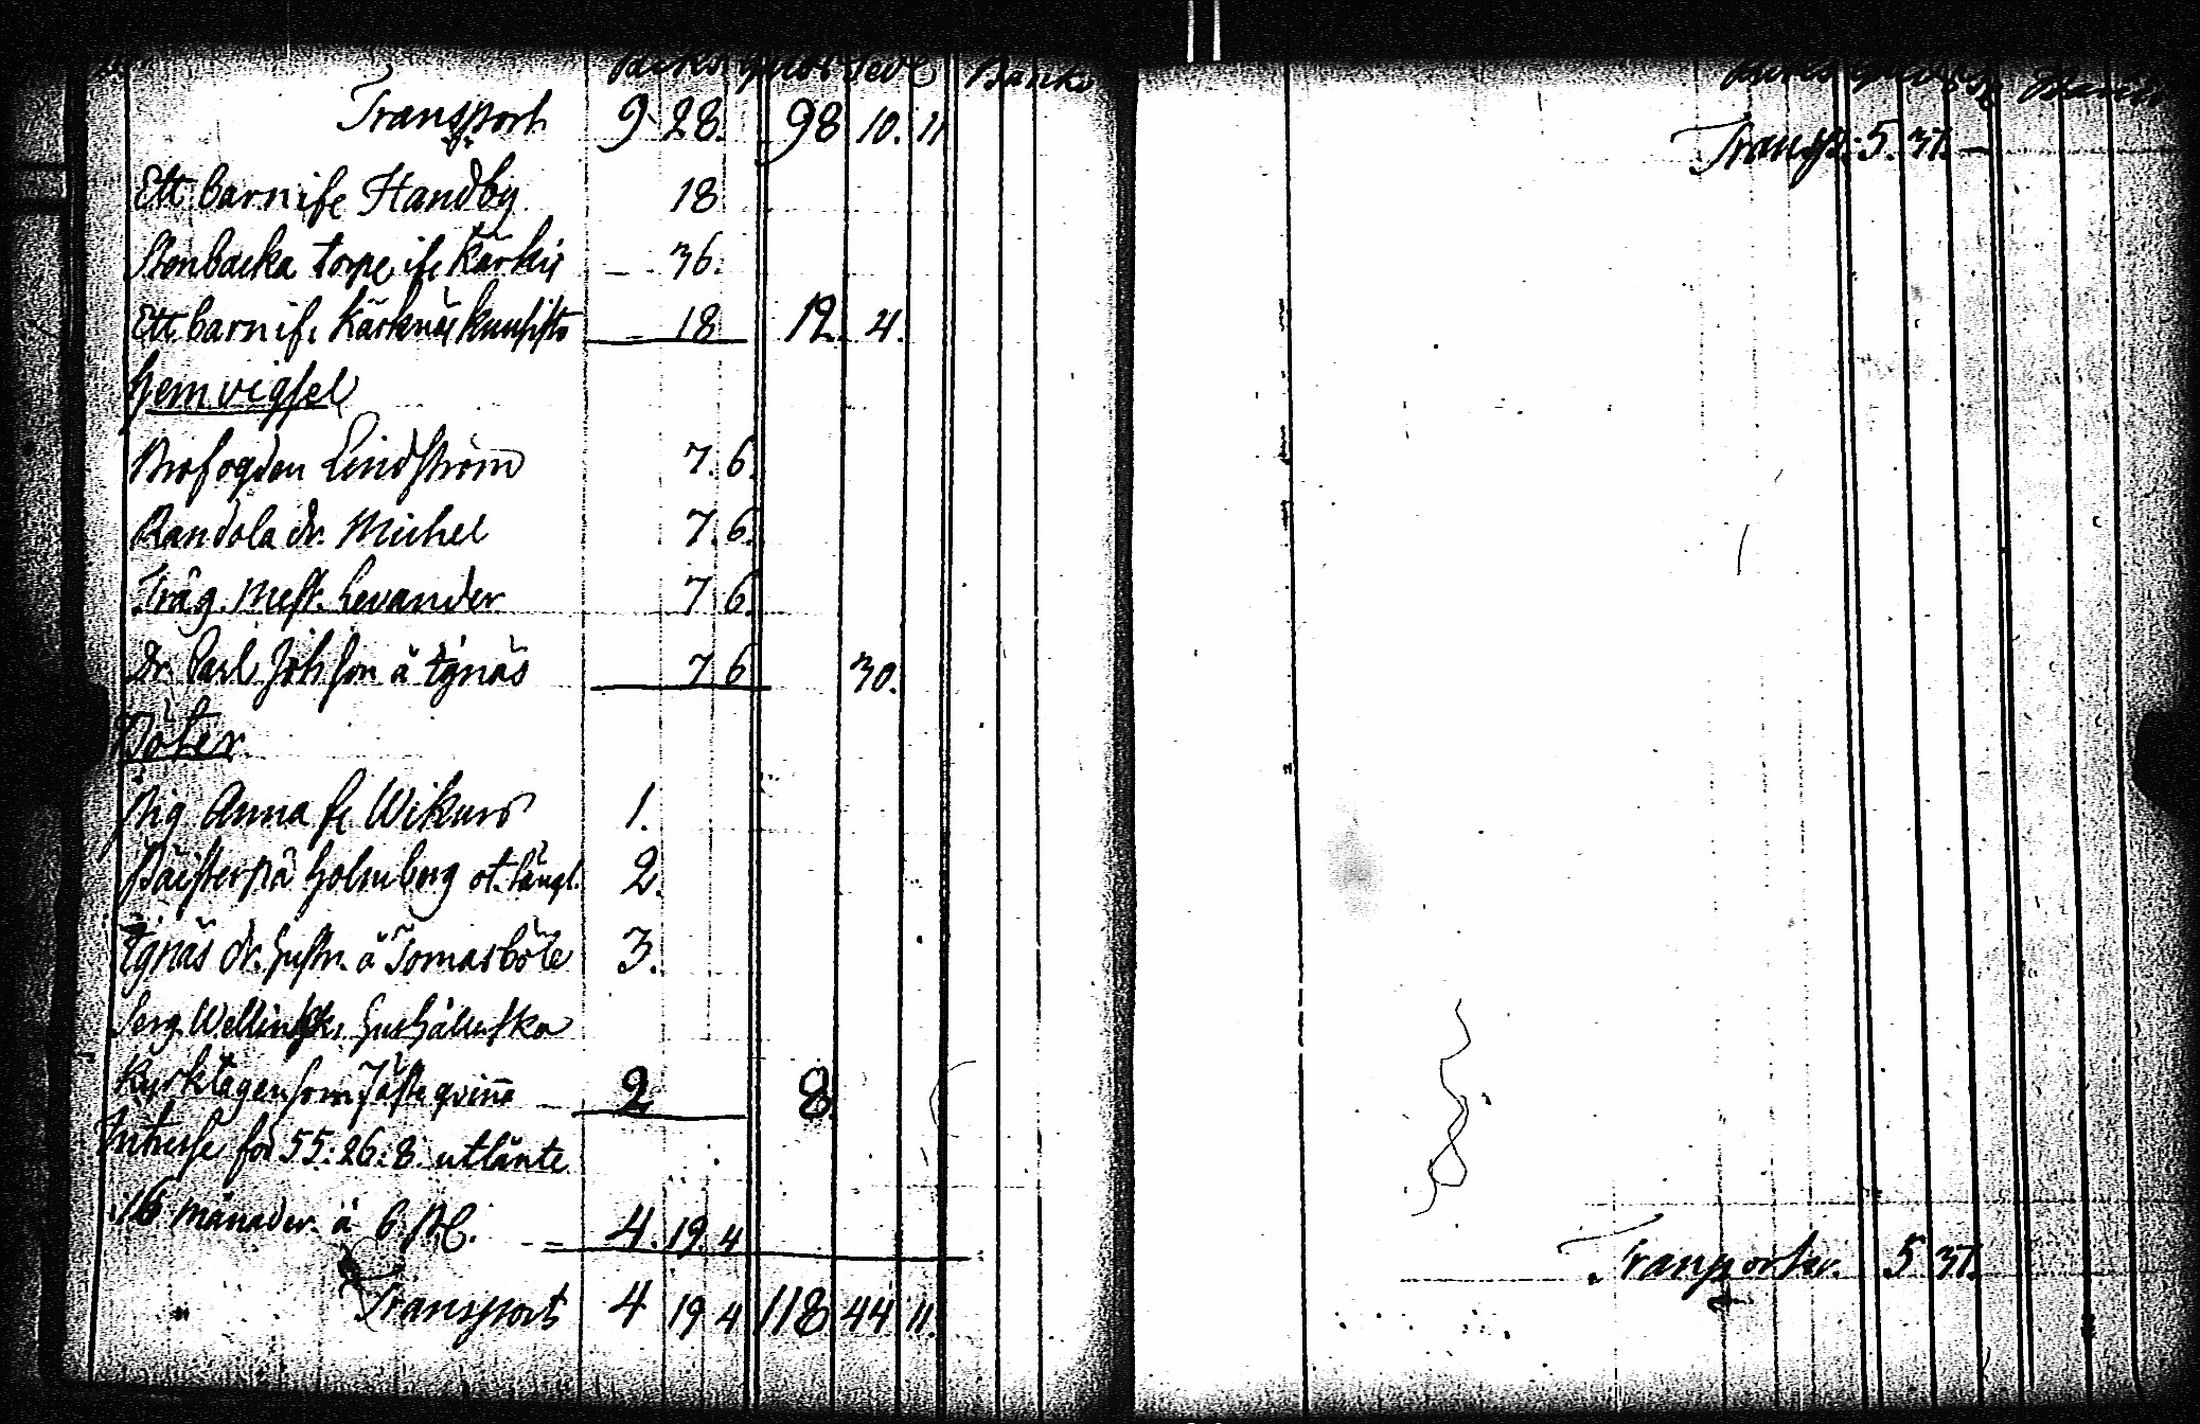 Transport 9 28. 98 10. 11
Ett barn ifr Handby 18
Stenbacka torp, ifr Kärkis – 36.
Ett barn ifr Kärknäs – 18 12. 4.
Hemvigsel
Brofogden Lindström 7. 6.
Randola dr. Michel 7. 6.
Träg. Mest. Levander 7 6.
Dr. Carl Johsson å Ignäs 7 6 30.
Böter
Pig Anna fr Wikurs 1.
Holmberg 2.
Dr. Gustn. å Tomasböle 3.
Serg. Hushållerska
Kyrktagen som Fästeqvinna – 2 8
Intresse för 55: 26: 8. utlånte
i 16 månader à 6 p C. – 4. 19. 4
Transport 4 19 4 118 44 11.
Transp: 5. 37. –
Transporter. 5 37.